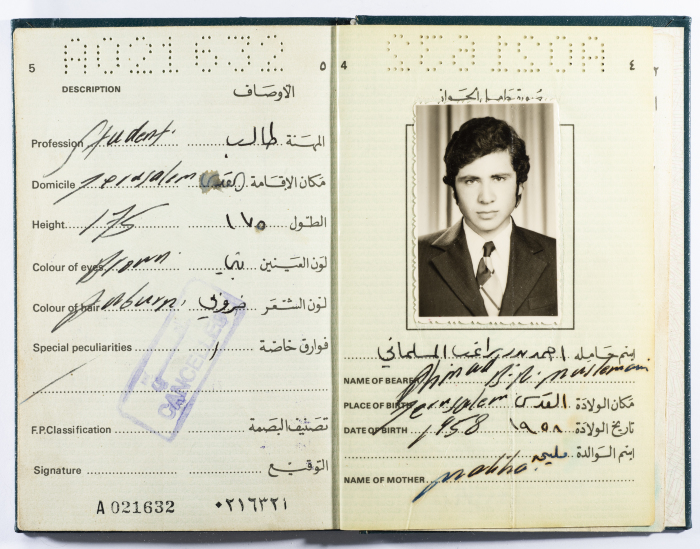 A021632
5 ٥
DESCRIPTION الأوصاف
Profession Student. المهنة طالب
Domicile Jerusalem مكان الإقامة القدس
Height 175 الطول ١٧٥
Colour of eyes Brown لون العينين بني
Colour of hair Auburn لون الشعر خروبي
Special peculiarities فوارق خاصة /
CANCELLED
F.P.Classification تصنيف البصمة
Signature التوقيع
A 021632 ٠٢١٦٣٢أ
A021632
4 ٤
صورة حامل الجواز
اسم حامله احمد بدر راغب المسلماني
NAME OF BEARER Ahmad B.R. Muslemani
PLACE OF BIRTH Jerusalem مكان الولادة القدس
DATE OF BIRTH 1958 تاريخ الولادة ١٩٥٨
اسم الوالدة مليحه
NAME OF MOTHER Maliha